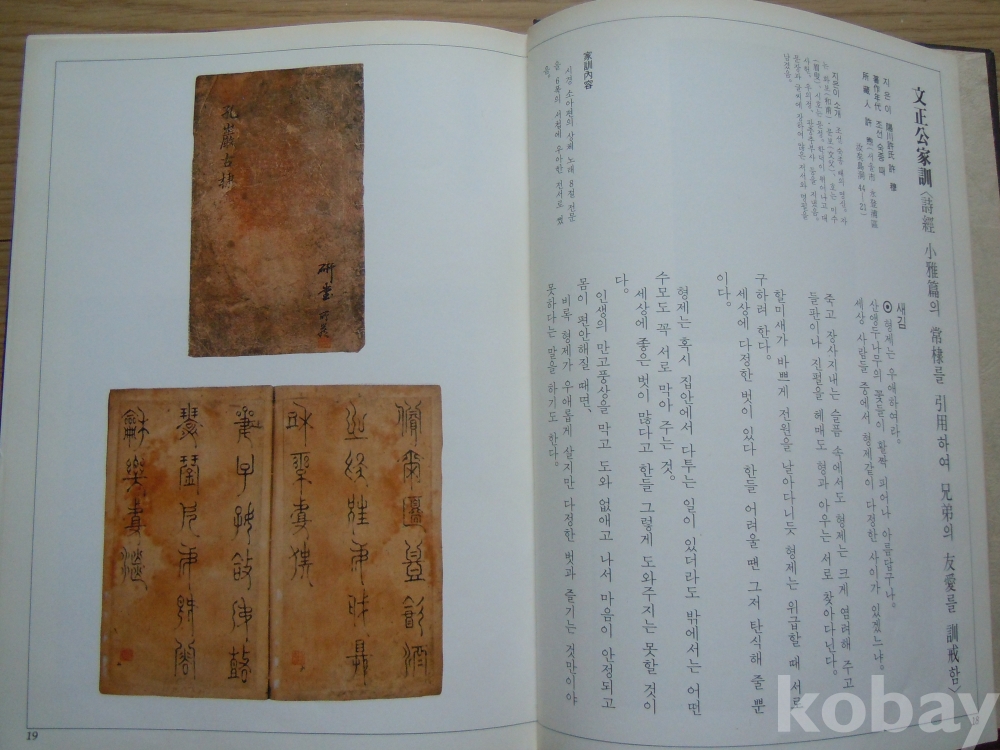 文正公家訓〈詩經 小雅篇의 常棣를 引用하여 兄弟의 友愛를 訓戒함〉
지은이 陽川許氏 許 穆
著作年代 조선 숙종 때
지은이 소개
家訓內容
시경 소아편의 상체 노래 8절 전문
을 6폭의 서첩에 우아한 전서로 썼
음.
새김
◉ 형제는 우애하여라.
산앵두나무의 꽃들이 활짝 피어나 아름답구나.
세상 사람들 중에서 형제같이 다정한 사이가 있겠느냐.
죽고 장사지내는 슬픔 속에서도 형제는 크게 염려해 주고
들판이나 진펄을 헤매도 형과 아우는 서로 찾아다닌다.
할미새가 바쁘게 전원을 날아다니듯 형제는 위급할 때 서로
구하려 한다.
세상에 다정한 벗이 있다 한들 어려울 땐 그저 탄식해 줄 뿐
이다.
형제는 혹시 집안에서 다투는 일이 있더라도 밖에서는 어떤
수모도 꼭 서로 막아 주는 것.
세상에 좋은 벗이 많다고 한들 그렇게 도와주지는 못할 것이
다.
인생의 만고풍상을 막고 도와 없애고 나서 마음이 안정되고
몸이 편안해질 때면,
비록 형제가 우애롭게 살지만 다정한 벗과 즐기는 것만이야
못하다는 말을 하기도 한다.
18
孔巖古蹟
硏堂
儐爾籩豆飮酒
之飫兄弟旣具
和樂且孺
妻子好合如鼓
瑟琴兄弟旣翕
和樂且湛
19
kobay